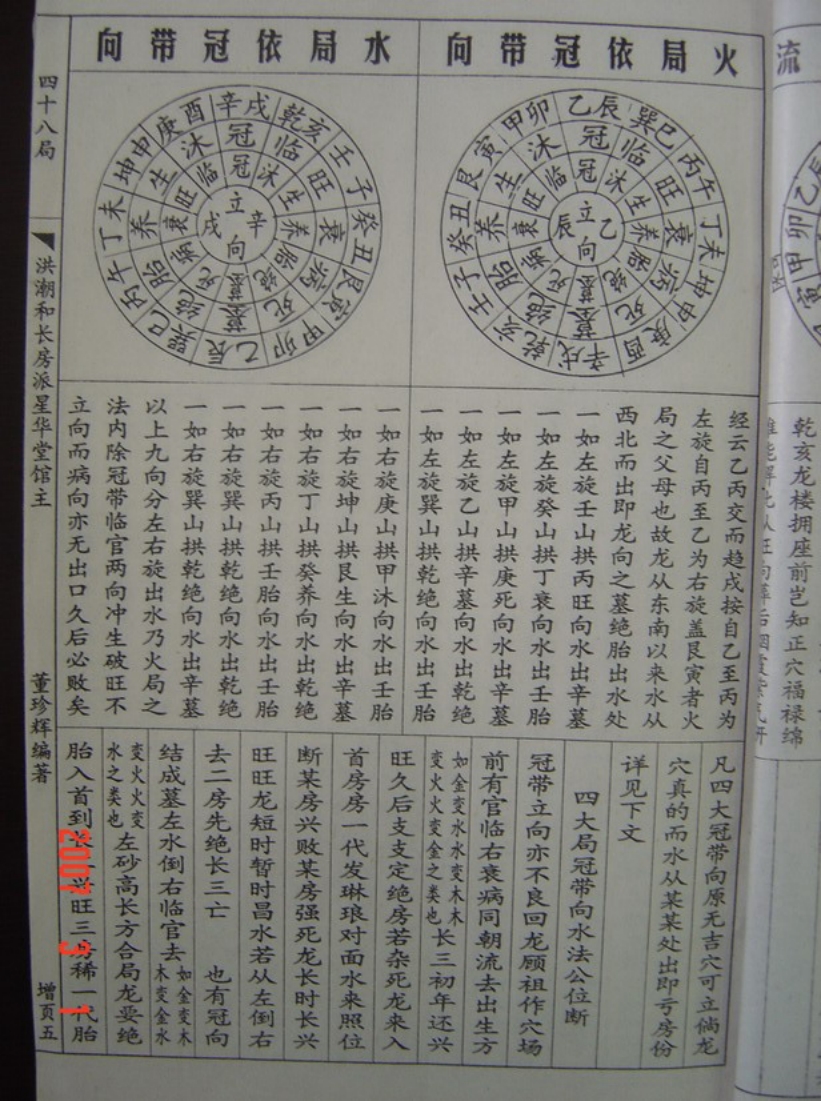 火局依冠带向
水局依冠带向
立乙向辰
冠沐生养胎绝死墓死病衰旺临
冠临旺衰病死墓绝胎养生沐
乙辰 巽巳 丙午 丁未 坤申 庚酉 辛戌 乾亥 壬子 癸丑 艮寅 甲卯
立辛向戌
冠临旺衰病死墓绝胎养生沐
辛戌 乾亥 壬子 癸丑 艮寅 甲卯 乙辰 巽巳 丙午 丁未 坤申 庚酉
经云乙丙交而趋戌按自乙至丙为
左旋自丙至乙为右旋盖艮寅者火
局之父母也故龙从东南以来水从
西北而出即龙向之墓绝胎出水处
一如左旋壬山拱丙旺向水出辛墓
一如左旋癸山拱丁衰向水出壬胎
一如左旋甲山拱庚死向水出辛墓
一如左旋乙山拱辛墓向水出乾绝
一如左旋巽山拱乾绝向水出壬胎
一如右旋庚山拱甲沐向水出壬胎
一如右旋坤山拱艮生向水出辛墓
一如右旋丁山拱癸养向水出乾绝
一如右旋丙山拱壬胎向水出壬胎
一如右旋巽山拱乾绝向水出乾绝
一如右旋巽山拱乾绝向水出辛墓
以上九向分左右旋出水乃火局之
法内除冠带临官两向冲生破旺不
立向而病向亦无出口久后必败矣
凡四大冠带向原无吉穴可立倘龙
穴真的而水从某某处出即亏房份
详见下文
四大局冠带向水法公位断
冠带立向亦不良回龙顾祖作穴场
前有官临右衰病同朝流去出生方
如金变水水变木木
变火火变金之类也
长三初年还兴
旺久后支支定绝房若杂死龙来入
首房房一代发琳琅对面水来照位
断某房兴败某房强死龙长时长兴
旺旺龙短时暂时昌水若从左倒右
去二房先绝长三亡 也有冠向
结成墓左水倒右临官去
如金变木
木变金水
变火火变
水之类也
左砂高长方合局龙要绝
胎入首到长兴旺三房稀一代胎
四十八局
洪潮和长房派星华堂馆主
董珍辉编著
增页五
2007 3 1
流
乾亥龙楼拥座前岂知正穴福禄绵